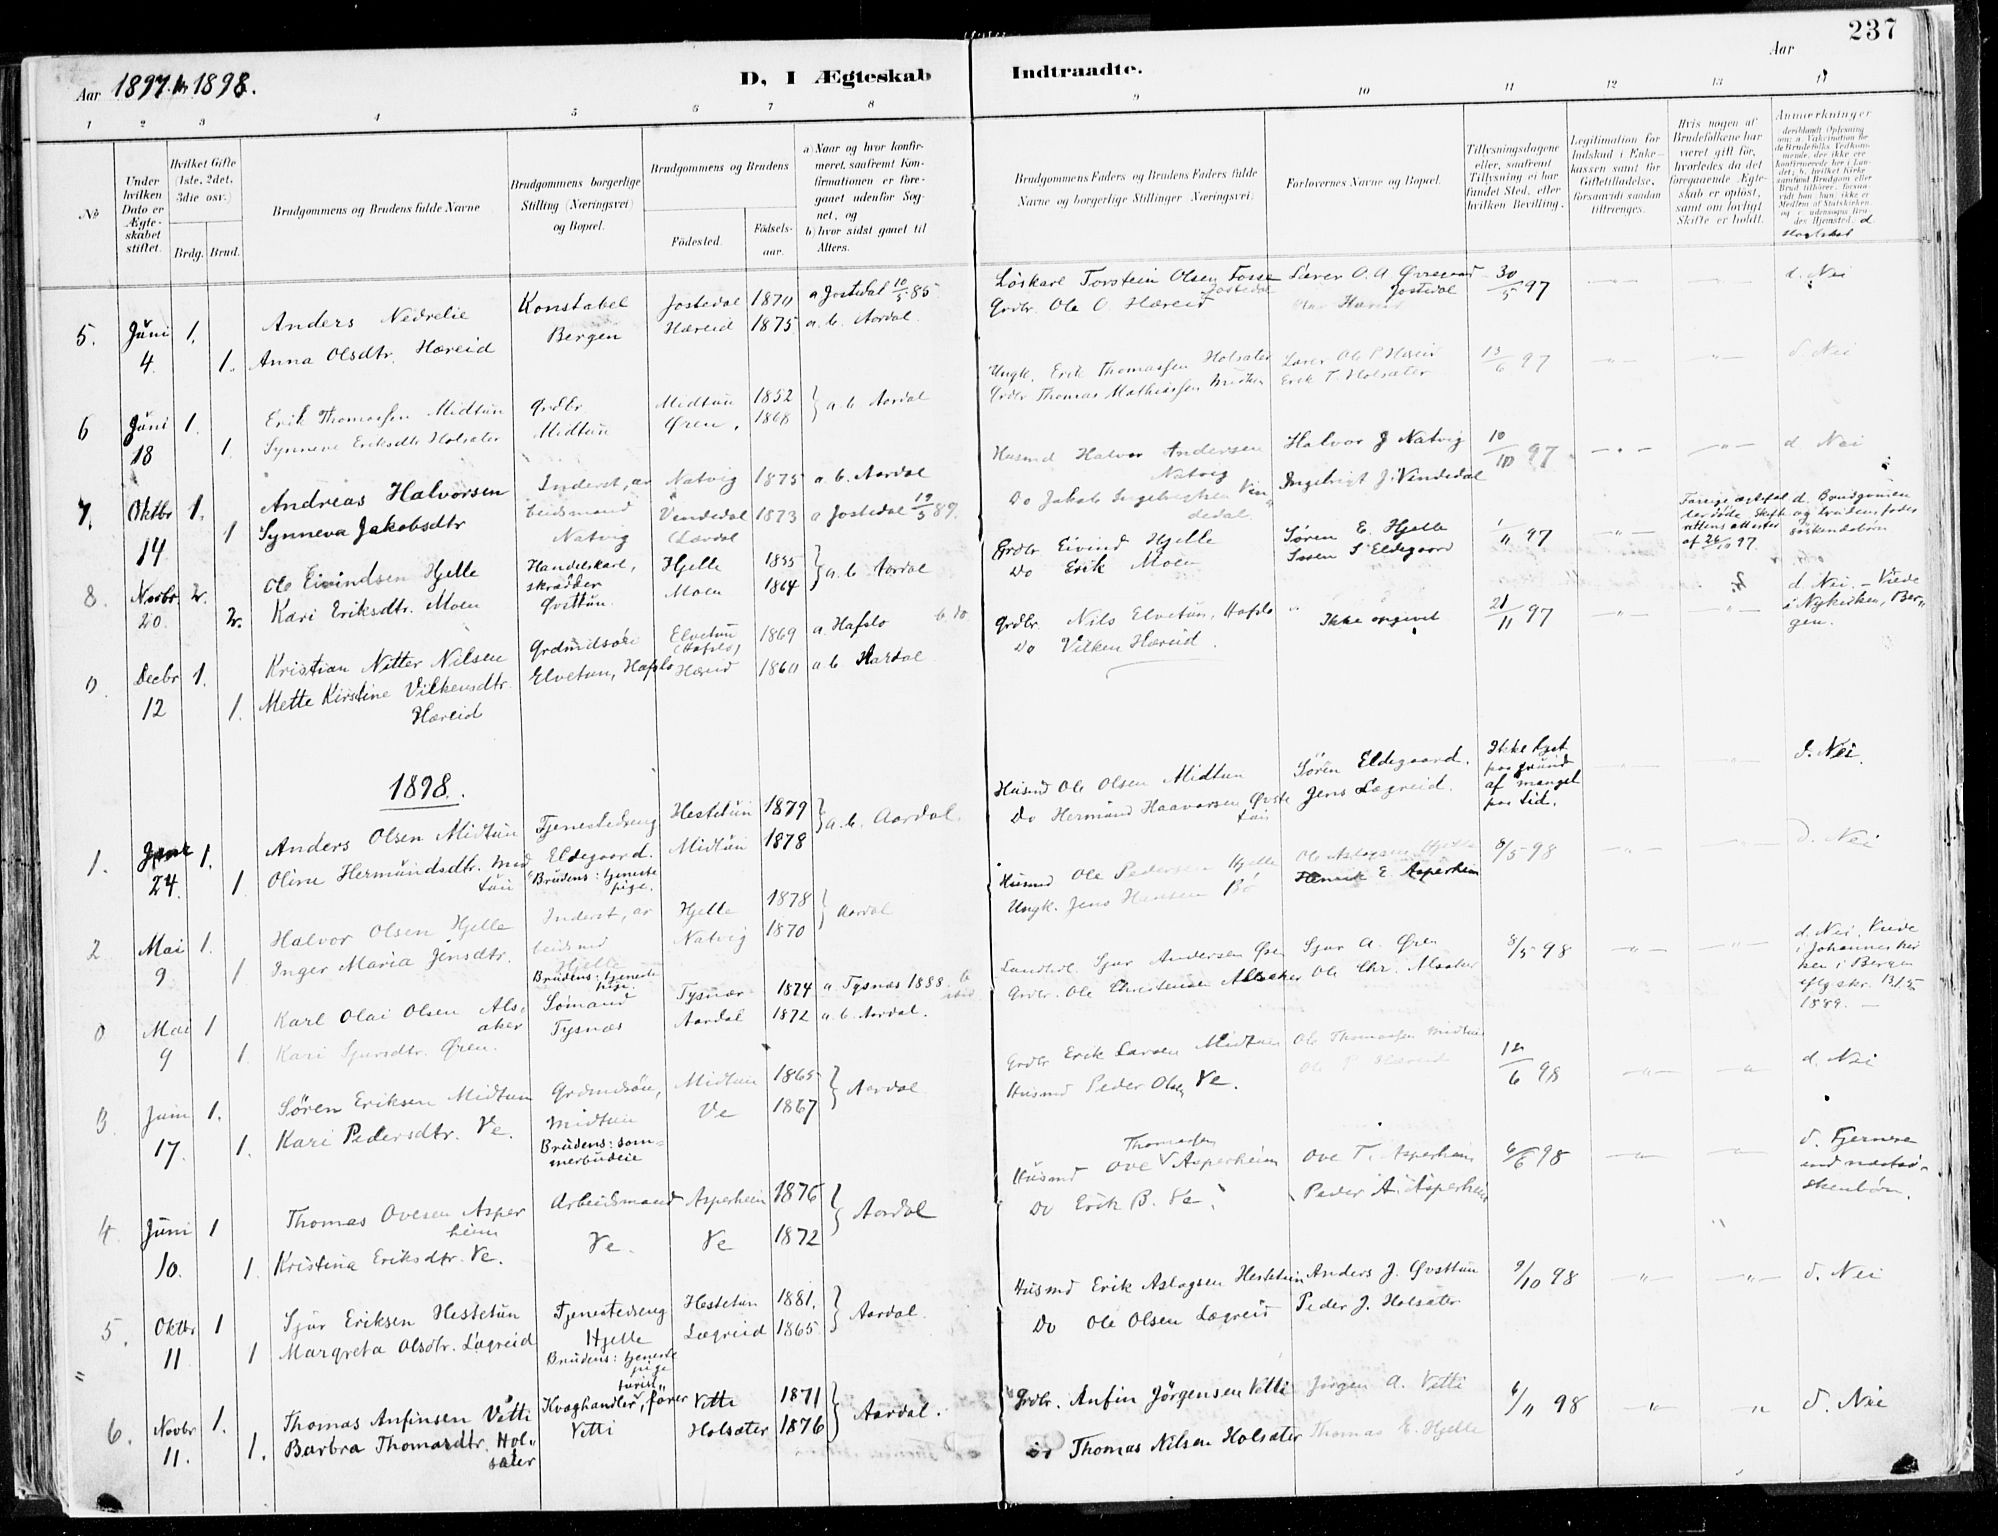 237
Aar 1897. 1898.
D, I Ægteskab Indtraadte.
Aar
1 2 3 4 5 6 7 8 9 10 11 12 13 14
No
Under hvilken Dato er Ægteskabet stiftet.
Hvilket Gifte (1ste, 2det, 3die osv.)
Brdg. Brud.
Brudgommens og Brudens fulde Navne
Brudgommens borgerlige Stilling (Næringsvei) og Bopæl.
Brudgommens og Brudens
Fødested.
Fødselsaar.
a) Naar og hvor konfirmeret, saafremt Konfirmationen er foregaaet udenfor Sognet, og
b) hvor sidst gaaet til Alters.
Brudgommens Faders og Brudens Faders fulde Navne og borgerlige Stillinger (Næringsvei).
Forlovernes Navne og Bopæl.
Tillysningsdagene eller, saafremt Tillysning ei har fundet Sted, efter hvilken Bevilling.
Legitimation for Indskud i Enkekassen samt for Giftetilladelse, forsaavidt saadan tiltrænges.
Hvis nogen af Brudefolkene har været gift før, hvorledes da det foregaaende Ægteskab er opløst, samt om lovligt Skifte er holdt.
Anmærkninger
5. Juni 1. Anders Nedrelie Konstabel Jostedal 1870 a Jostedal 10/5 85 Løskarl Torstein Olsen Fosse Jostedal Lærer O. A. Øvregaard Jostedal 30/5 97 d. Nei
4. 1. Anna Olsdtr. Hæreid Bergen Hæreid 1875 a. b. Aardal. Grdbr. Ole O. Hæreid
6 Juni 1. Erik Thomassen Midtun Grdbr Midtun 1852 a. b. Aardal Ungk. Erik Thomassen Holsæter 13/6 97 d. Nei
18 1. Synneve Eriksdtr Holsæter Midtun Øren, 1868 Grdbr Thomas Mathiassen Midtun Erik T. Holsæter
7. Oktbr 1. Andreas Halvorsen Inderst, arbeidsmand Natvig 1875 a. b. Aardal Husmd Halvor Andersen Natvig Halvor J Natvig 10/10 97 d Nei
14 1 Synneva Jakobsdtr Natvig Vendedal (Lærdal 1873 a Jostedal 19/5 89. Do Jakob Ingebrigtsen Vendedal. Ingebrigt J. Vendedal
8. Novbr. 2. Ole Eivindsen Hjelle Handelskarl, skrædder Hjelle 1855 a. b. Aardal Grdbr Eivind Hjelle Søren E. Hjelle 1/11 97
20 2. Kari Eriksdtr. Moen Øvsttun. Moen 1864 Do Erik Moen Søren S Eldegaard
0. Decbr 1. Kristian Nitter Nilsen Grdmdsøn Elvetun (Hafslo) 1869 a. Hafslo b. do Grdbr. Nils Elvetun, Hafslo Ikke opgivet 21/11 97 d. Nei – Viede i Nykirken, Bergen.
12 1. Mette Kirstine Vilkensdtr. Hæreid Elvetun, Hafslo Hæreid 1860 a. b. Aardal Do Vilken Hæreid.
1898.
1. 1. Anders Olsen Midtun Tjenestedreng Hestetun 1879 a. b. Aardal. Husmd Ole Olsen Midtun Søren Eldegaard. Ikke lyst paa grund af mangel paa tid. d. Nei.
24. 1 Oline Hermundsdtr. Midtun Eldegaard. Brudens: tjenestepige. Midtun 1878 Do Hermund Haavorsen Øvsttun Jens Lægreid.
2 Mai 1. Halvor Olsen Hjelle Inderst, arbeidsmd Hjelle 1878 Aardal Husmd Ole Pedersen Hjelle Ole Aslagsen Hjelle 8/5 98 d. Nei
9 1 Inger Maria Jensdtr. Hjelle Brudens: tjenestepige. Natvig 1870 Ungk. Jens Hansen Bø Henrik E. Asperheim
0 Mai 1 Karl Olai Olsen Alsaker Sømand Tysnæs 1874 a. Tysnæs 1888. Landhdl. Sjur Andersen Øren Sjur A. Øren 8/5 98 d. Nei. Viede i Johanneskirken i Bergen
9 1. Kari Sjursdtr. Øren. Tysnæs Aardal 1872 a. b. Aardal. Grdbr. Ole Christensen Alsaker Ole Chr. Alsaker
3. Juni 1. Søren Eriksen Midtun Grdmdsøn, Midtun 1865 Aardal Grdbr Erik Larsen Midtun Ole Thomassen Midtun 12/6 98 d. Nei
17. 1. Kari Pedersdtr. Ve. Midtun Brudens: sommerbudeie Ve 1867 Husmd Peder Olsen Ve. Ole P Hæreid
4. Juni 1 Thomas Ovesen Asperheim Arbeidsmand Asperheim 1876 Aardal Husmd Ove Thomassen Asperheim Ove T. Asperheim 6/6 98 d. Fjernere end næstsøskenbørn.
10. 1. Kristina Eriksdtr. Ve. Ve. Ve 1872 Do Erik B. Ve. Peder A. Asperheim
5. Oktbr 1 Sjur Eriksen Hestetun Tjenestedreng Hestetun 1881. Aardal. Husmd Erik Aslagsen Hestetun Anders J. Øvsttun 9/10 98 d. Nei
11 1 Margreta Olsdtr. Lægreid Hjelle Brudens: tjenestepige Lægreid 1865 Do Ole Olsen Lægreid Peder J. Holsæter
6. Novbr 1. Thomas Anfinsen Vetti Kvæghandler, turistfører Vetti 1871 Aardal. Grdbr. Anfin Jørgensen Vetti Jørgen A. Vetti 6/11 98 d. Nei
11. 1. Barbra Thomasdtr. Holsæter Vetti Holsæter 1876 Thomas Nilsen Holsæter Thomas E. Hjelle